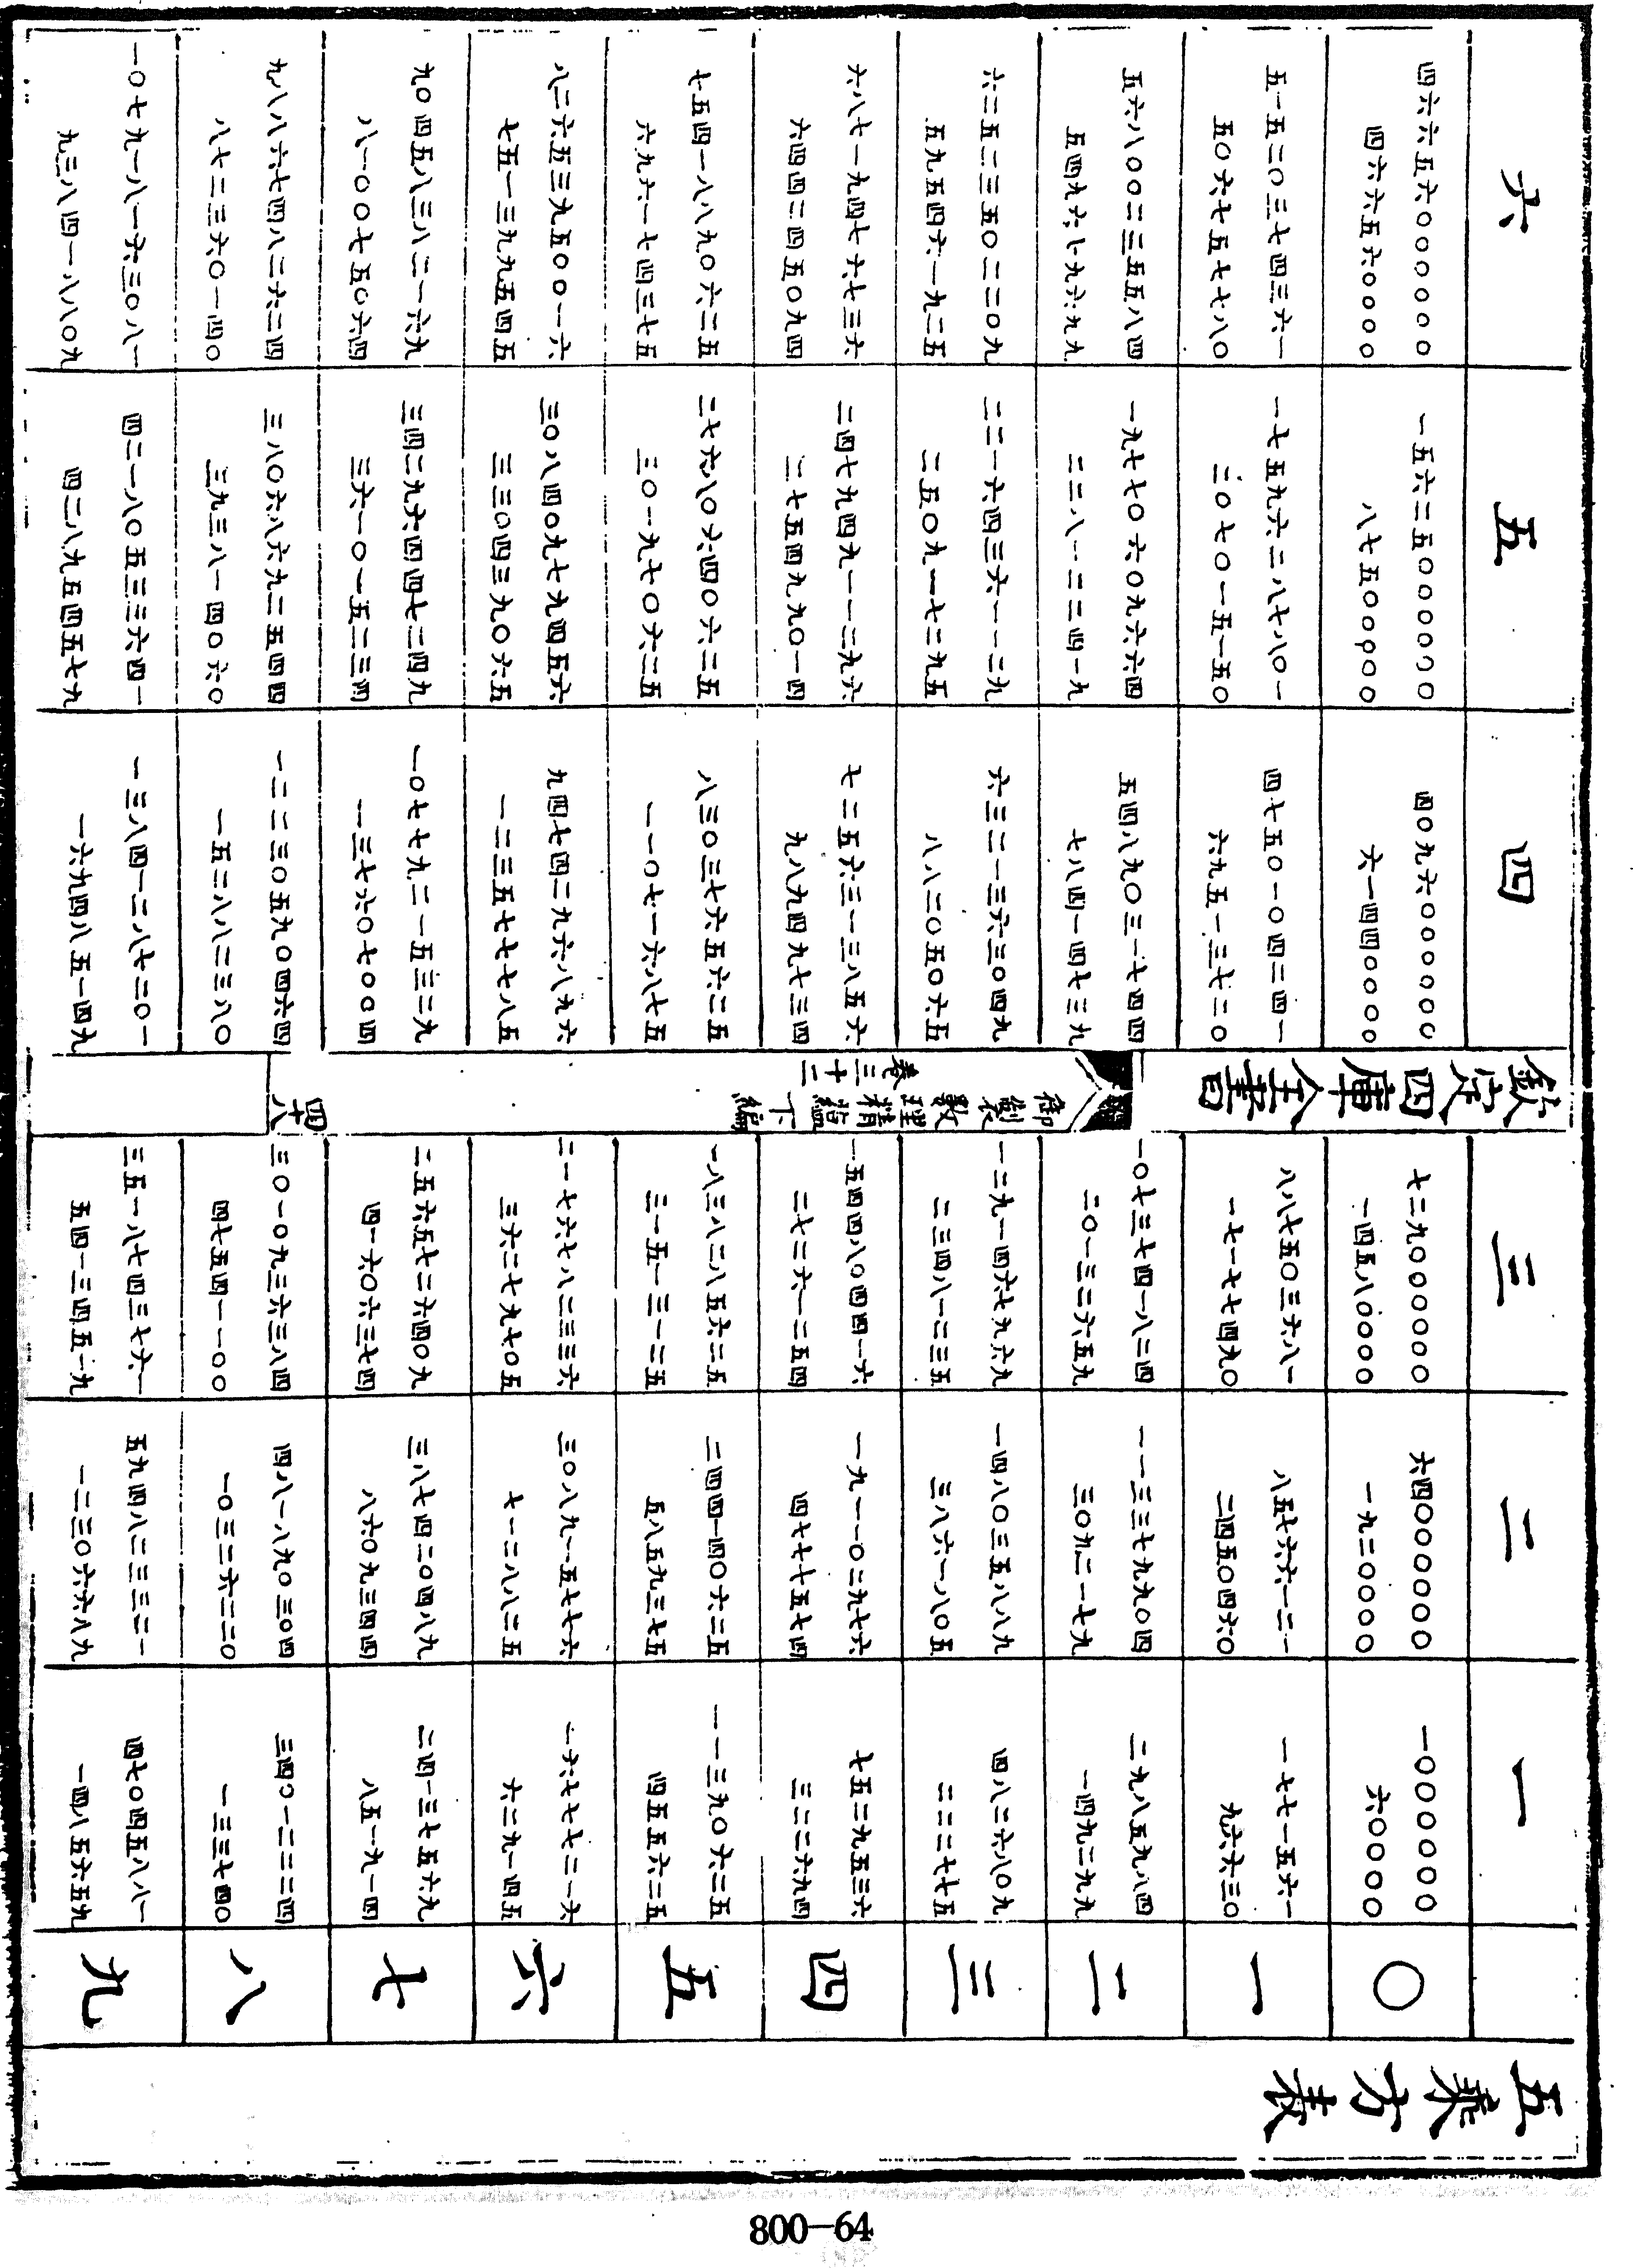 五乘方表
欽定四庫全書
御製數理精蘊下編
卷三十二
四十八
六
五
四
三
二
一
四六六五六〇〇〇〇〇〇
四六六五六〇〇〇〇
一五六二五〇〇〇〇〇〇
八七五〇〇〇〇〇
四〇九六〇〇〇〇〇〇
六一四四〇〇〇〇
七二九〇〇〇〇〇〇
一四五八〇〇〇〇
六四〇〇〇〇〇〇
一九二〇〇〇〇
一〇〇〇〇〇〇
六〇〇〇〇
〇
五一五二〇三七四三六一
五〇六七五七七八〇
一七五九六二八七八〇一
二〇七〇一五一五〇
四七五〇一〇四二四一
六九五一三七二〇
八八七五〇三六八一
一七一七七四九〇
八五七六六一二一
二四五〇四六〇
一七七一五六一
九六六三〇
一
五六八〇〇二三五五八四
五四九六七九六九九
一九七七〇六〇九六六四
二二八一二二四一九
五四八九〇三一七四四
七八四一四七三九
一〇七三七四一八二四
二〇一三二六五九
一一三三七九九〇四
三〇九二一七九
二九八五九八四
一四九二九九
二
六二五二三五〇二二〇九
五九五四六一九二五
二二一六四三六一一二九
二五〇九一七二九五
六三二一三六三〇四九
八八二〇五〇六五
一二九一四六七九六九
二三四八一二三五
一四八〇三五八八九
三八六一八〇五
四八二六八〇九
二二二七七五
三
六八七一九四七六七三六
六四四二四五〇九四
二四七九四九一一二九六
二七五四九九〇一四
七二五六三一三八五六
九八九四九七三四
一五四四八〇四四一六
二七二六一二五四
一九一一〇二九七六
四七七七五七四
七五二九五三六
三二二六九四
四
七五四一八八九〇六二五
六九六一七四三七五
二七六八〇六四〇六二五
三〇一九七〇六二五
八三〇三七六五六二五
一一〇七一六八七五
一八三八二八五六二五
三一五一三一二五
二四四一四〇六二五
五八五九三七五
一一三九〇六二五
四五五六二五
五
八二六五三九五〇〇一六
七五一三九九五四五
三〇八四〇九七九四五六
三三〇四三九〇六五
九四七四二九六八九六
一二三五七七七八五
二一七六七八二三三六
三六二七九七〇五
三〇八九一五七七六
七一二八八二五
一六七七七二一六
六二九一四五
六
九〇四五八三八二一六九
八一〇〇七五〇六四
三四二九六四四七二四九
三六一〇一五二三四
一〇七七九二一五三二九
一三七六〇七〇〇四
二五六五七二六四〇九
四一六〇六三七四
三八七四二〇四八九
八六〇九三四四
二四一三七五六九
八五一九一四
七
九八八六七四八二六二四
八七二三六〇一四〇
三八〇六八六九二五四四
三九三八一四〇六〇
一二二三〇五九〇四六四
一五二八八二三八〇
三〇一〇九三六三八四
四七五四一一〇〇
四八一八九〇三〇四
一〇三二六二二〇
三四〇一二二二四
一一三三七四〇
八
一〇七九一八一六三〇八一
九三八四一八八〇九
四二一八〇五三三六四一
四二八九五四五七九
一三八四一二八七二〇一
一六九四八五一四九
三五一八七四三七六一
五四一三四五一九
五九四八二三三二一
一二三〇六六八九
四七〇四五八八一
一四八五六五九
九
800—64